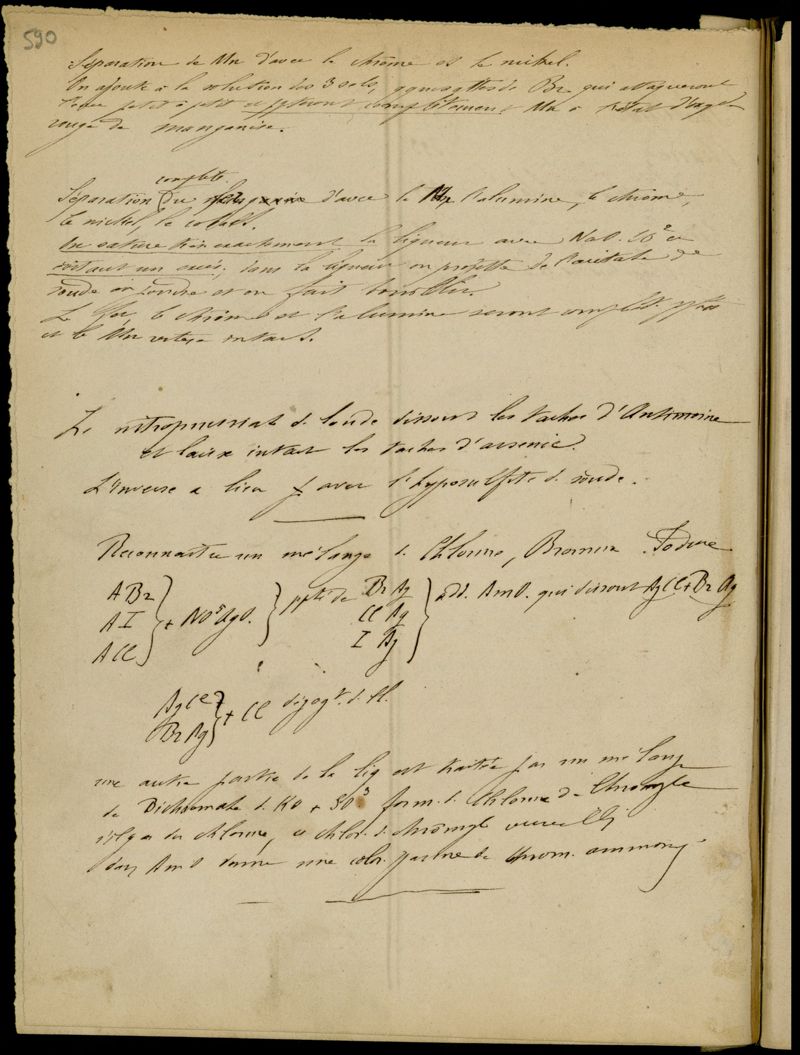 590
Séparation de Mn d'avec le chrôme et le nickel.
On ajoute à la solution des 3 sels, qques gttes de Br qui attaqueront
petit à petit et ppteront complètement Mn à l'état d'oxyde
rouge de manganèse.
complète
Séparation du d'avec le Mn l'alumine, le chrôme,
le nickel, le cobalt.
On sature très exactement la liqueur avec NaO. CO² en
évitant un excès; dans la liqueur on projette de l'acétate de
soude en poudre et on fait bouillir.
Le Fer, le chrôme et l'alumine seront complèt pptés
et le Mn restera intact.
Le nitroprussiat de soude dissout les taches d'Antimoine
et laisse intact les taches d'arsenic.
L'inverse a lieu avec l'hyposulfite de soude.
Reconnaitre un mélange de Chlorure, Bromure Iodure
ABr
AI
ACl
+ NO⁵AgO.
ppté de BrAg
ClAg
IAg
add. AmO. qui dissout AgCl+BrAg
AgCl
BrAg
+ Cl dégagt. d. Cl.
une autre partie de la liq est traitée par un mélange
de Dichromate d. KO + SO³ form. d. Chlorure de Chromyle
s'il y a du chlorure, ce chlor. d. chrômyle
dans AmO donne une color. jaune de chrom. ammoniq.